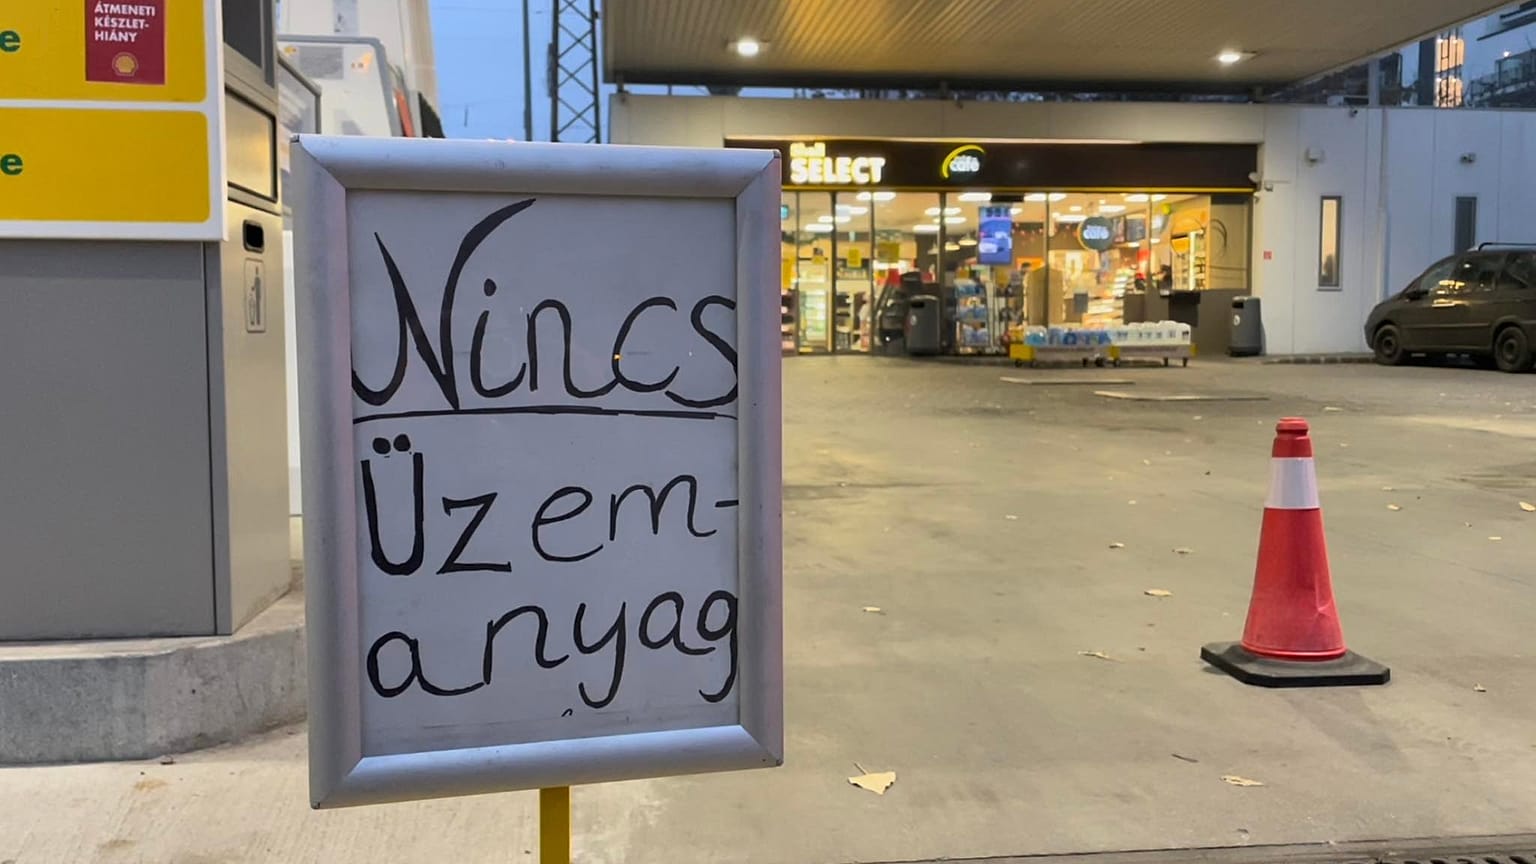 ÁTMENETI
KÉSZLET-
HIÁNY
e
e
Shell
SELECT
café
café
Nincs
Üzem-
anyag